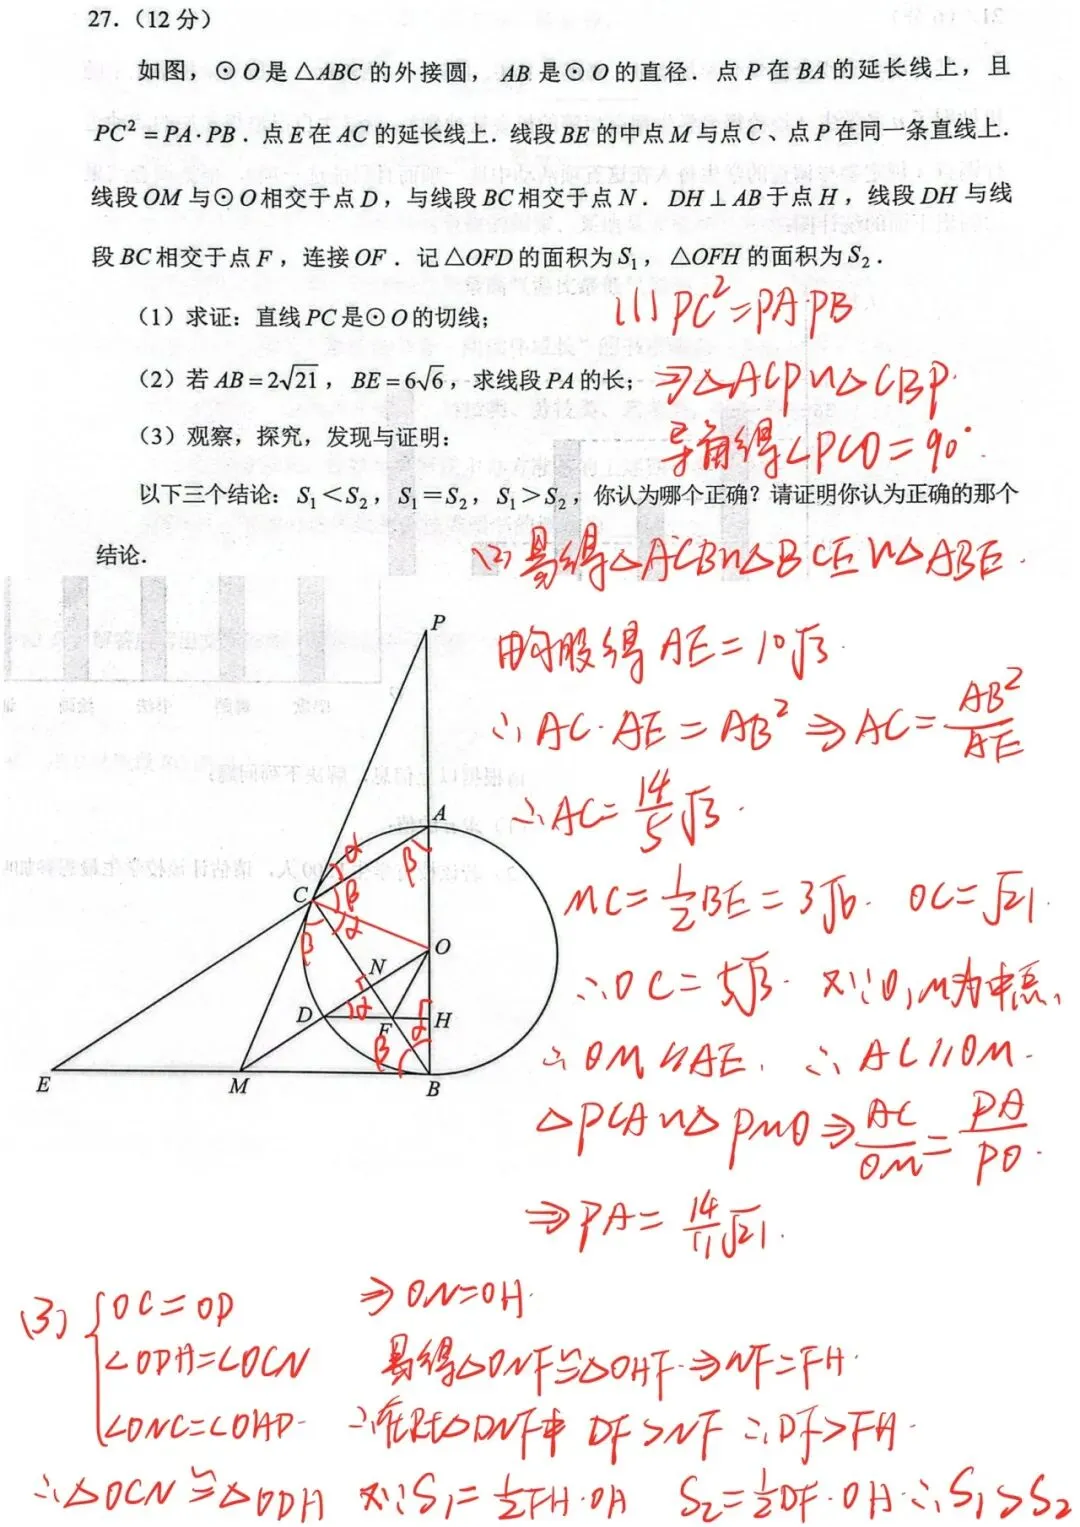 27.（12 分）
如图，⊙O 是△ABC 的外接圆，AB 是⊙O 的直径．点 P 在 BA 的延长线上，且
PC²=PA·PB．点 E 在 AC 的延长线上．线段 BE 的中点 M 与点 C、点 P 在同一条直线上．
线段 OM 与⊙O 相交于点 D，与线段 BC 相交于点 N．DH⊥AB 于点 H，线段 DH 与线
段 BC 相交于点 F，连接 OF．记△OFD 的面积为 S₁，△OFH 的面积为 S₂．
（1）求证：直线 PC 是⊙O 的切线；
(1) PC²=PA·PB
（2）若 AB=2√21，BE=6√6，求线段 PA 的长；
⇒△ACP∽△CBP.
（3）观察，探究，发现与证明：
导角得∠PCO=90°.
以下三个结论：S₁<S₂，S₁=S₂，S₁>S₂，你认为哪个正确？请证明你认为正确的那个
结论．
(2) 易得△ACB∽△BCE∽△ABE.
由勾股得 AE=10√3.
∴AC·AE=AB²⇒AC=AB²/AE
∴AC=14/5√3.
MC=1/2BE=3√6. OC=√21.
∴OC=5√3. 又∵O,M为中点,
∴OM∥AE. ∴AC∥OM.
△PCA∽△PMO⇒AC/OM=PA/PO.
⇒PA=14/11√21.
P
A
α
β
C
β
α
β
O
N
D
α
F
H
α
β
E
M
B
(3) {OC=OD
∠ODH=∠OCN
∠ONC=∠OHD.
∴△OCN≌△ODH
⇒ON=OH.
易得△ONF≌△OHF.⇒NF=FH.
∴在Rt△DNF中 DF>NF ∴DF>FH.
又∵S₁=1/2FH·OH S₂=1/2DF·OH.∴S₁>S₂